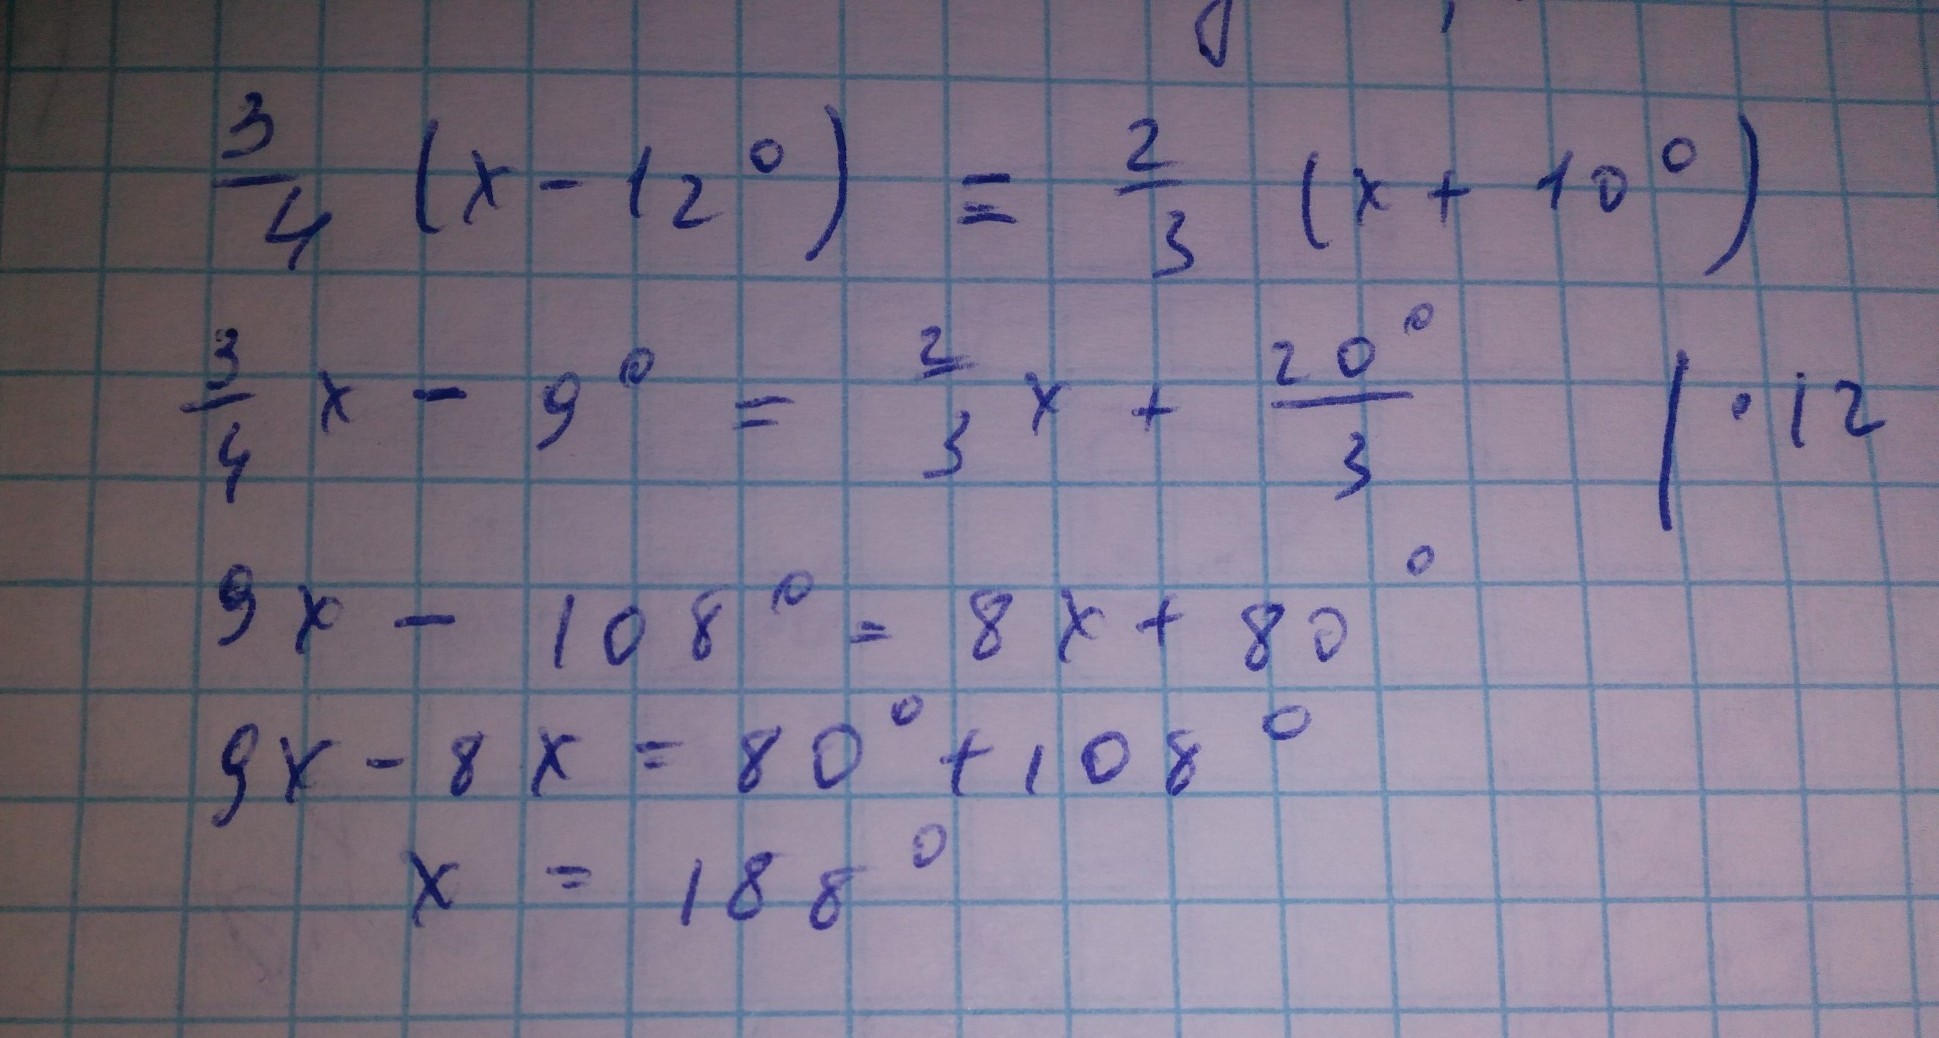 3/4 (x - 12°) = 2/3 (x + 10°)
3/4 x - 9° = 2/3 x + 20°/3 | · 12
9x - 108° = 8x + 80°
9x - 8x = 80° + 108°
x = 188°